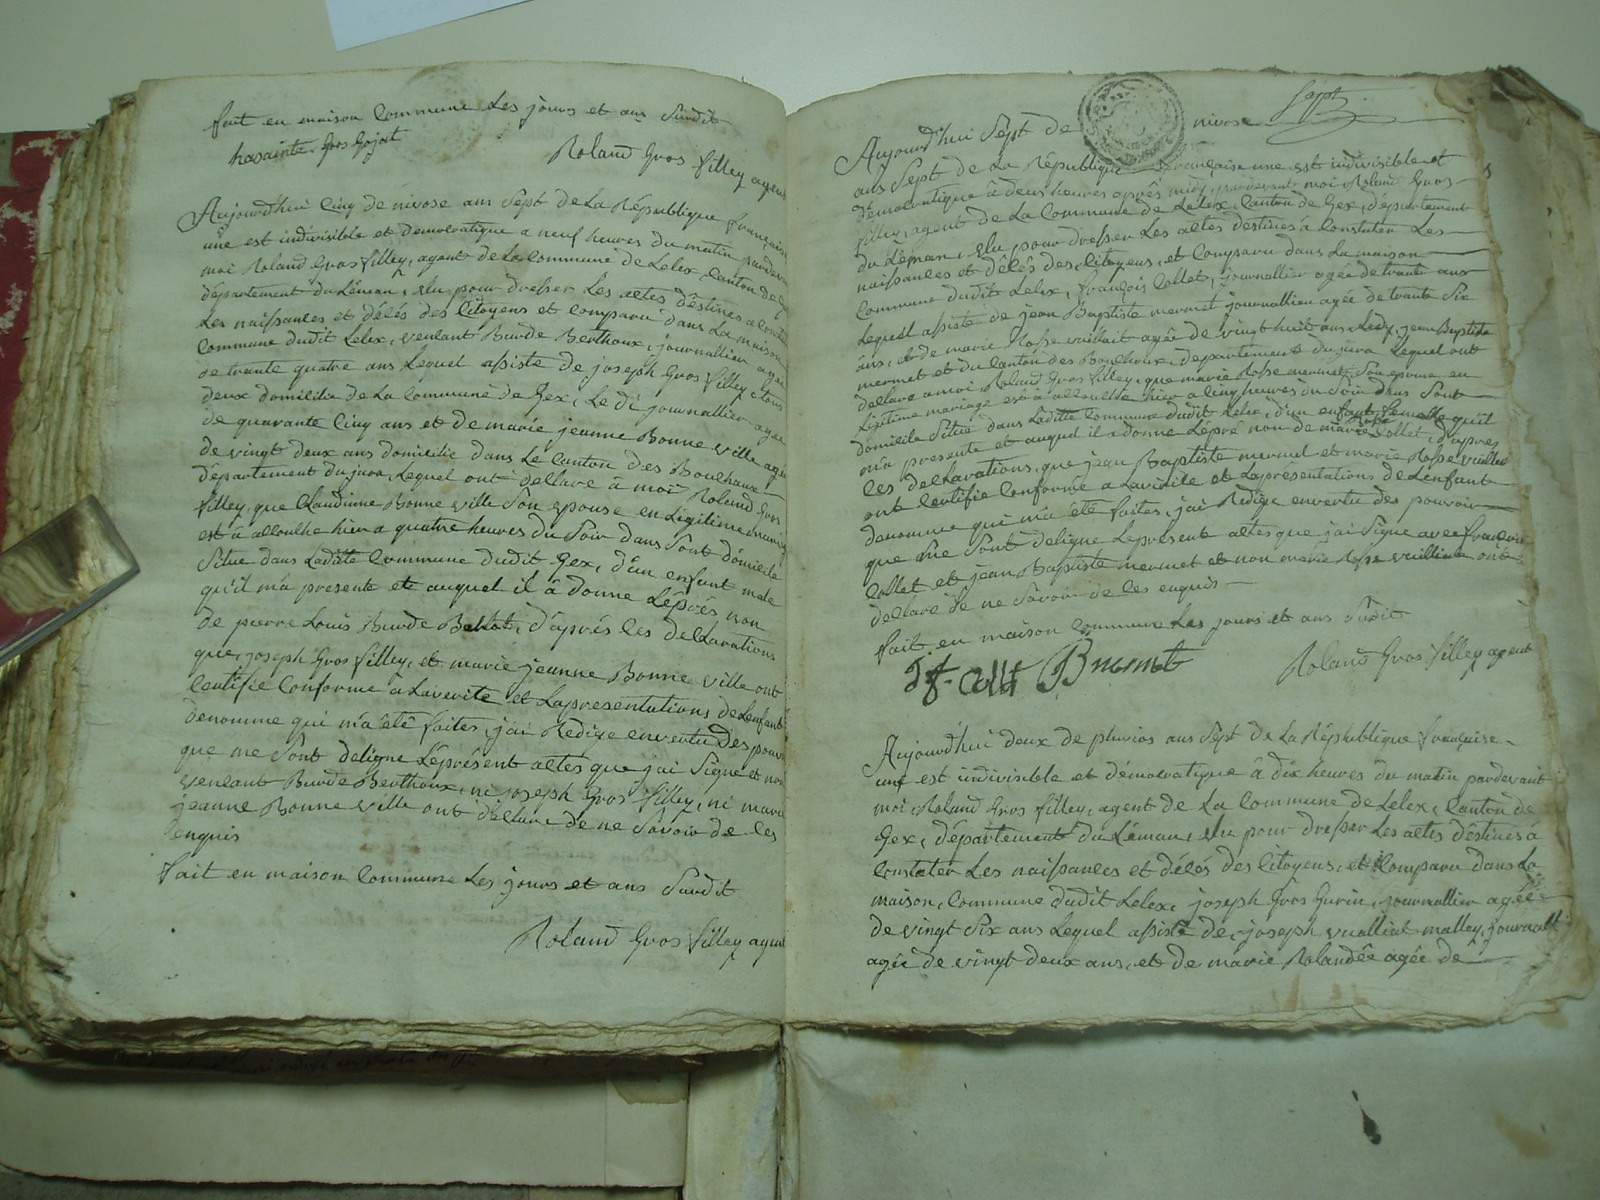 fait en maison Commune Les jours et ans Susdit
hasainte Gros Gojat
Roland Gros filley agent
Aujourd'hui Cinq de nivose ans Sept de La République française
une est indivisible et démocratique a neuf heures du matin pardevan
moi Roland Gros filley, agent de la Commune de Lelex, Canton de Gex
département du Léman, elu pour dresser Les actes déstines a Consta
Les naissances et décés des Citoyens et Comparu dans La maison
Commune dudit Lelex, venant Burde Berthoux, journallier agée
de trante quatre ans Lequel assiste de joseph Gros filley, tous
deux domicilie de La Commune de Gex, Le di journallier agée
de quarante Cinq ans et de marie jeanne Bonne ville agée
de vingt deux ans domicilie dans Le Canton des Bouchaux
département du jura, Lequel ont déclare à moi Roland Gros
filley, que Claudinne Bonne ville Son epouse en Légitime mariage
est à accouche hier a quatre heures du Soir dans Sont domicile
Situe dans Laditte Commune dudit Gex, d'un enfant male
qu'il m'a presente et auquel il à donne Léprés non
de pierre Louis Burde Bertet, d'aprés les declarations
que, joseph Gros filley, et marie jeanne Bonne ville ont
Certifie Conforme a Laverite et Lapresentations de Lenfant
denomme qui m'a été faites, j'ai Redige envertu des pouvoir
que me Sont deligne Léprésent actes que j'ai Signe et non
venant Burde Berthoux, ni joseph Gros filley, ni marie
jeanne Bonne ville ont déclare de ne Savoir de ces
enquis
Fait en maison Commune Les jours et ans Susdit
Roland Gros filley agent
Sept
Aujourd'hui Sept de nivose
ans Sept de La République française une est indivisible et
démocratique à deux heures aprés midy, pardevant moi Roland Gros
filley, agent de La Commune de Lelex, Canton de Gex, département
du Léman, elu pour dresser Les actes destines à Constater Les
naissances et décés des Citoyens, et Comparu dans La maison
Commune dudit Lelex, françois Collet, journallier agée de trante ans
Lequel assiste de jean Baptiste mermet journallier agée de trante Six
ans, et de marie Rosse vuillait agée de vingt huit ans, Ledy, jean Baptiste
mermet et du Canton des Bouchoux, departement du jura Lequel ont
dellare a moi Roland Gros filley, que marie Rosse mermet, Son epouse en
Légitime mariage est à accouche hier a Cinq heures du Soir dans Sont
domicile Situé dans Laditte Commune dudit Lelex, d'un enfant femelle qu'il
m'a presente et auquel il a donne Lépré non de marie Rosse Collet, d'apres
Ces declarations, que jean Baptiste mermet et marie Rosse vuillet
ont Certifie Conforme a Laverite et Laprésentations de Lenfant
denomme qui m'a été faites, j'ai Redige envertu des pouvoir
que me Sont deligne Léprésent actes que j'ai Signe avec françois
Collet et jean Baptiste mermet et non marie Rosse vuillieme ont
dellaré de ne Savoir de Ces enquis
fait en maison Commune Les jours et ans Susdit
Roland Gros filley agent
Aujourd'hui deux de pluvios ans Sept de La République française
une est indivisible et démocratique à dix heures du matin pardevant
moi, Roland Gros filley, agent de La Commune de Lelex, Canton de
Gex, département du Léman, elu pour dresser Les actes déstines à
Constater Les naissances et décés des Citoyens, et Comparu dans La
maison, Commune dudit Lelex, joseph Gros Gurin, journallier agée
de vingt Six ans Lequel assisté de, joseph vualliat malley, journalli
agée de vingt deux ans, et de marie Rolandée agée de